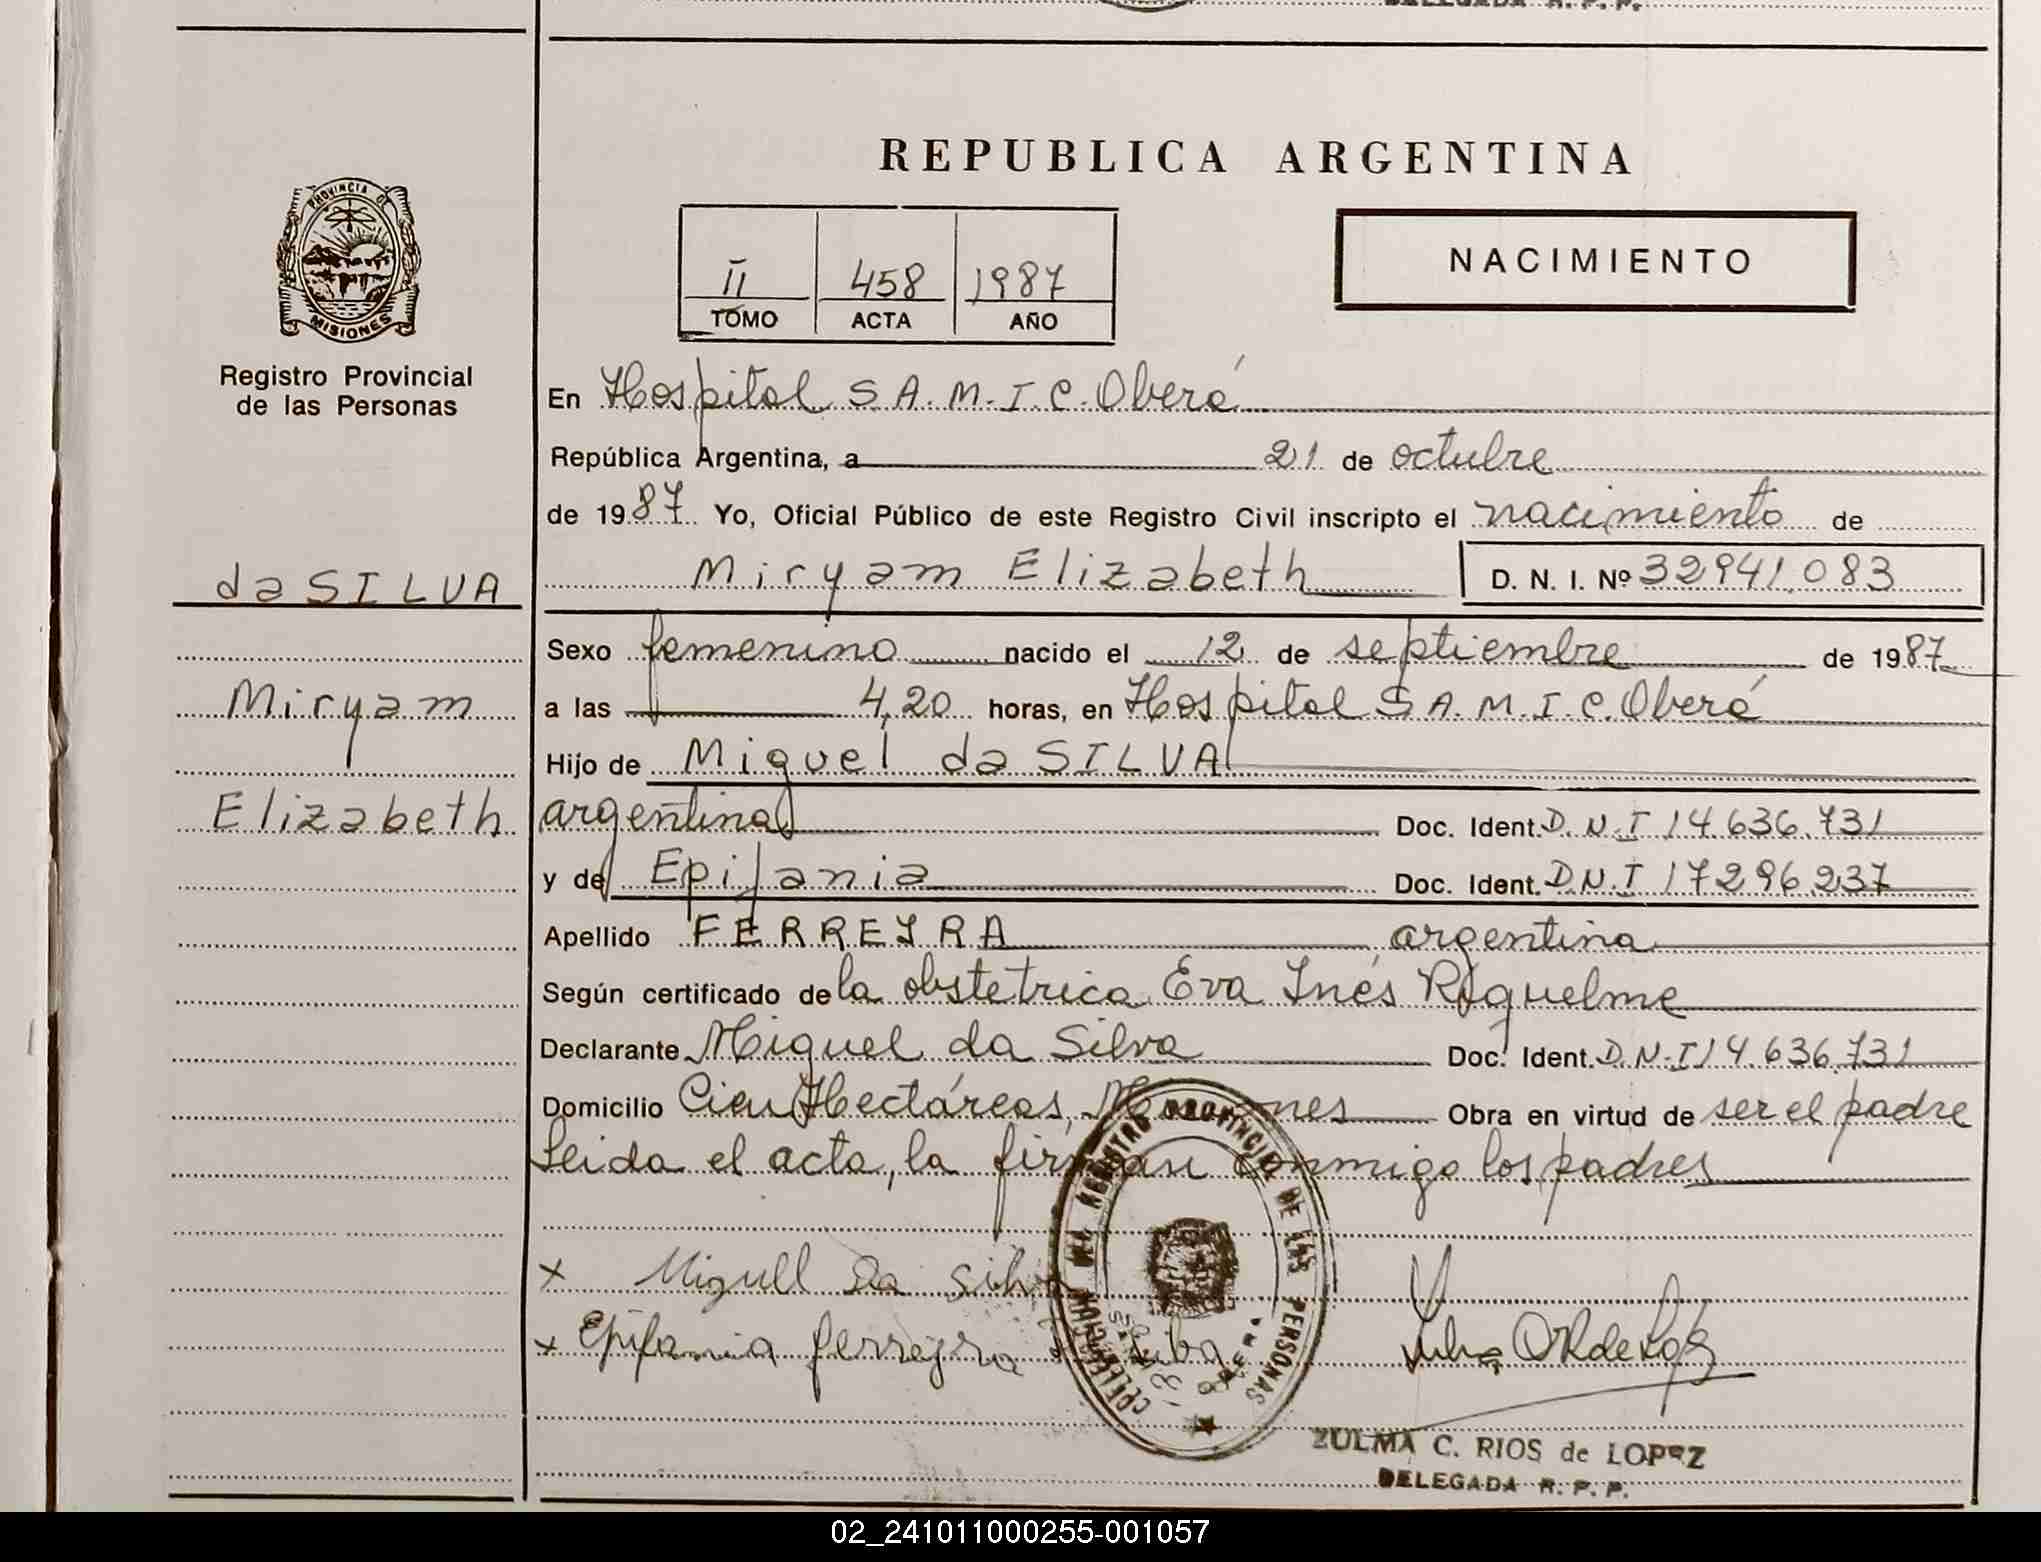 DELEGADA R. P. P.
REPUBLICA ARGENTINA
PROVINCIA DE
MISIONES
Registro Provincial
de las Personas
II 458 1987
TOMO ACTA AÑO
NACIMIENTO
En Hospital S.A.M.I.C. Oberá
República Argentina, a 21 de octubre
de 1987 Yo, Oficial Público de este Registro Civil inscripto el nacimiento de
Miryam Elizabeth D. N. I. Nº 32941.083
da SILVA
Sexo femenino nacido el 12 de septiembre de 1987
Miryam
a las 4,20 horas, en Hospital S.A.M.I.C. Oberá
Hijo de Miguel da SILVA
Elizabeth
argentina Doc. Ident. D.N.I 14.636.731
y de Epifania Doc. Ident. D.N.I 17296.237
Apellido FERREYRA argentina
Según certificado de la obstetrica Eva Inés Riquelme
Declarante Miguel da Silva Doc. Ident. D.N.I 14.636.731
Domicilio Cien Hectáreas, Misiones Obra en virtud de ser el padre
Leida el acta, la firman conmigo los padres
x Miguell Da Silva
x Epifania ferreyra
REGISTRO PROVINCIAL DE LAS PERSONAS
OBERA
ZULMA C. RIOS de LOPEZ
DELEGADA R. P. P.
02_241011000255-001057